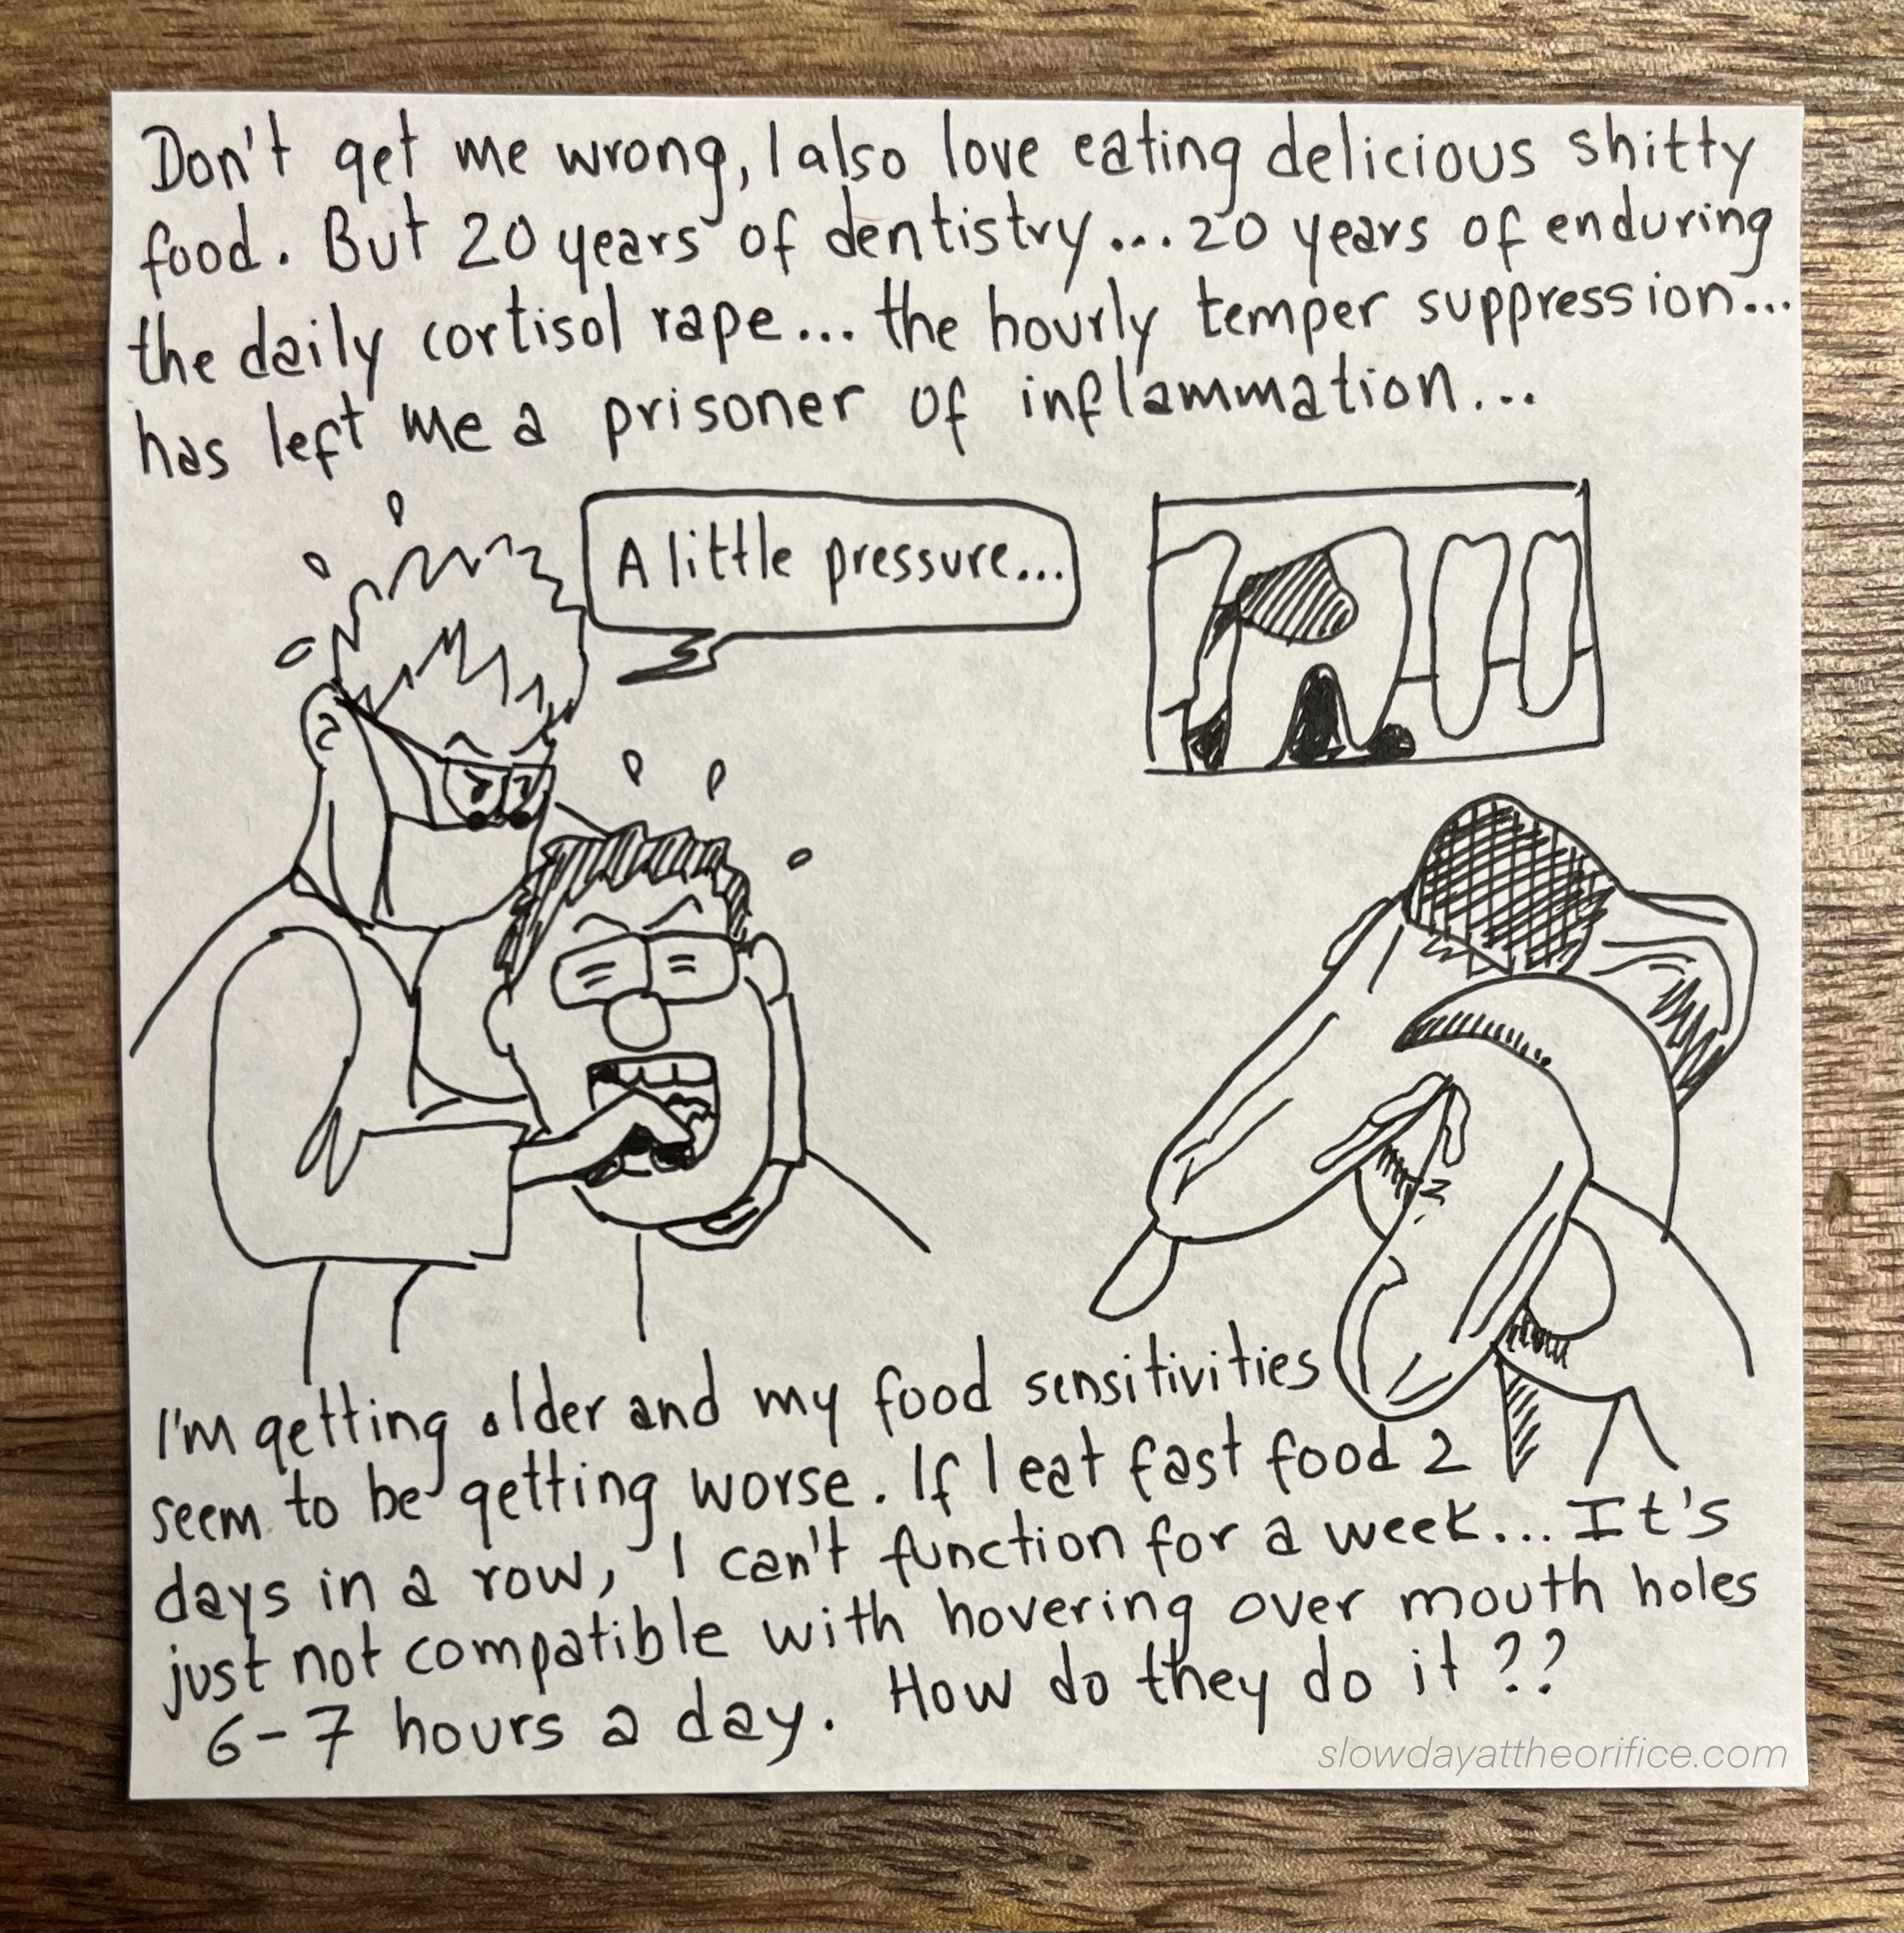 Don't get me wrong, I also love eating delicious shitty
food. But 20 years of dentistry... 20 years of enduring
the daily cortisol rape... the hourly temper suppression...
has left me a prisoner of inflammation...
A little pressure...
I'm getting older and my food sensitivities
seem to be getting worse. If I eat fast food 2
days in a row, I can't function for a week... It's
just not compatible with hovering over mouth holes
6-7 hours a day. How do they do it??
slowdayattheorifice.com